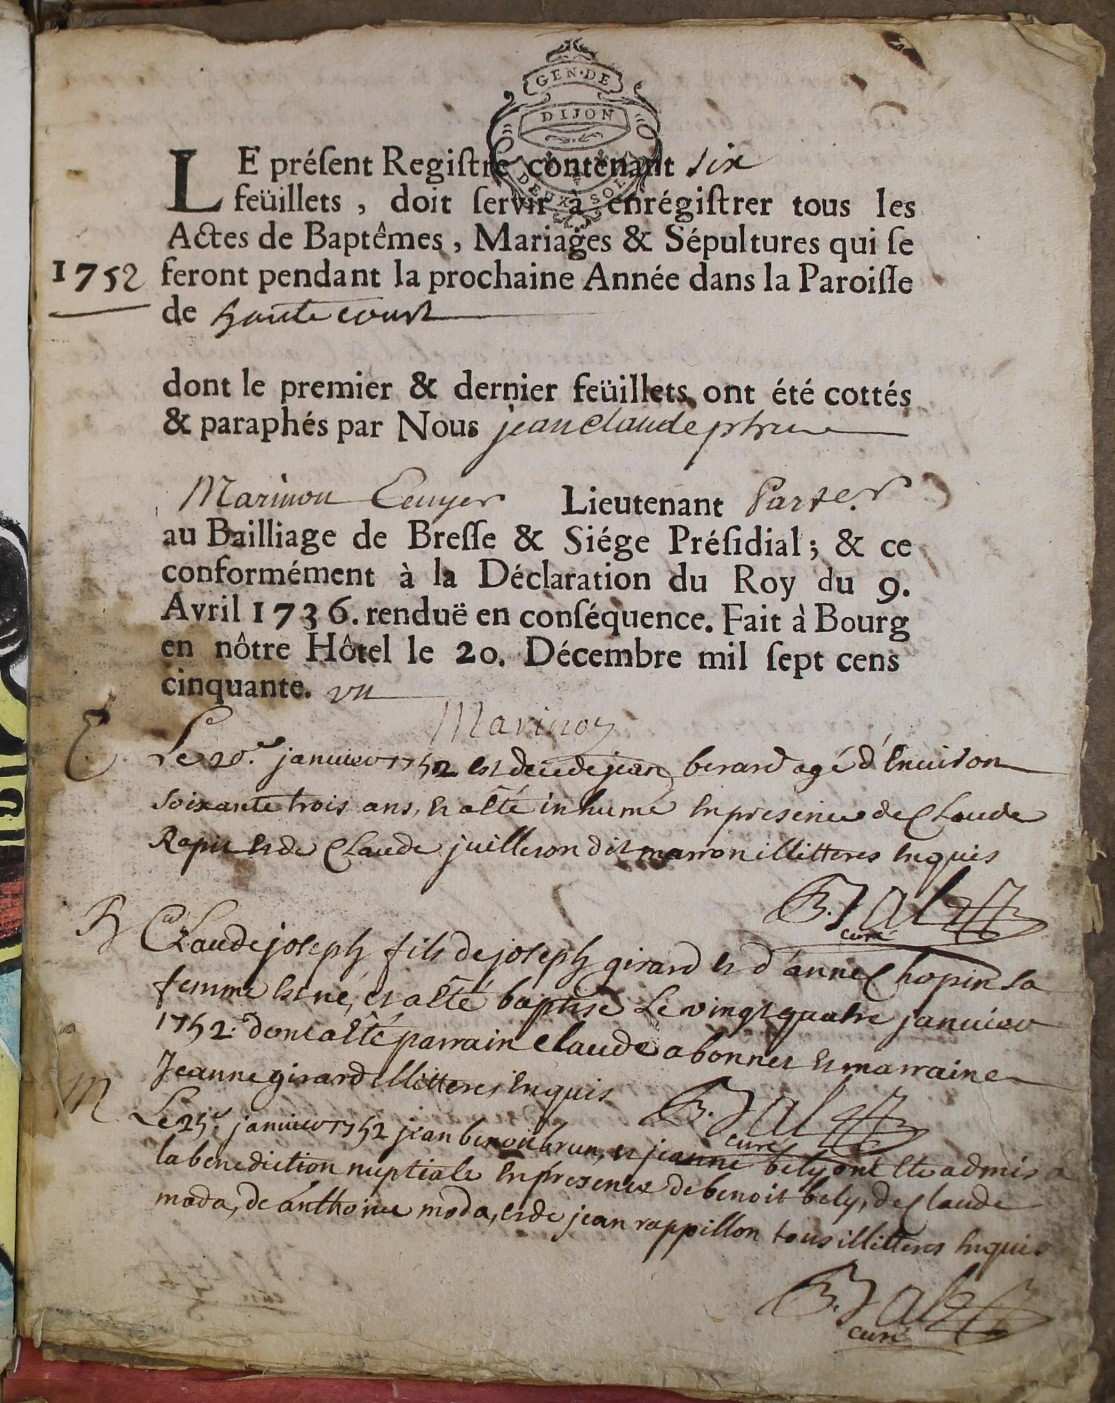 GEN·DE
DIJON
DEUX SOLS
LE préſent Regiſtre contenant six
feüillets, doit ſervir à enrégiſtrer tous les
Actes de Baptêmes, Mariages & Sépultures qui ſe
1752 feront pendant la prochaine Année dans la Paroiſſe
de hautecourt
dont le premier & dernier feüillets ont été cottés
& paraphés par Nous jean claude
Marinon Ecuyer Lieutenant Parter.
au Bailliage de Breſſe & Siége Préſidial; & ce
conformément à la Déclaration du Roy du 9.
Avril 1736. renduë en conſéquence. Fait à Bourg
en nôtre Hôtel le 20. Décembre mil ſept cens
cinquante. vn
Marinon
Le 20e. janvier 1752 est decede jean berard agé d'Environ
soixante trois ans, et a esté inhumé en presence de Claude
et de Claude juilleron dit marron illitteres enquis
curé
B Claude joseph fils de joseph girard et d'anne Chopin sa
femme est né, et a esté baptisé Le vingt quatre janvier
1752. dont a esté parrain Claude abonnet et marraine
Jeanne girard illitteres enquis
curé
M Le 25e. janvier 1752 jean benoit brun, et jeanne bely ont ete admis a
la benediction nuptiale en presence de benoit bely, de Claude
moda, de anthoine moda, et de jean rappillon tous illitteres enquis
curé